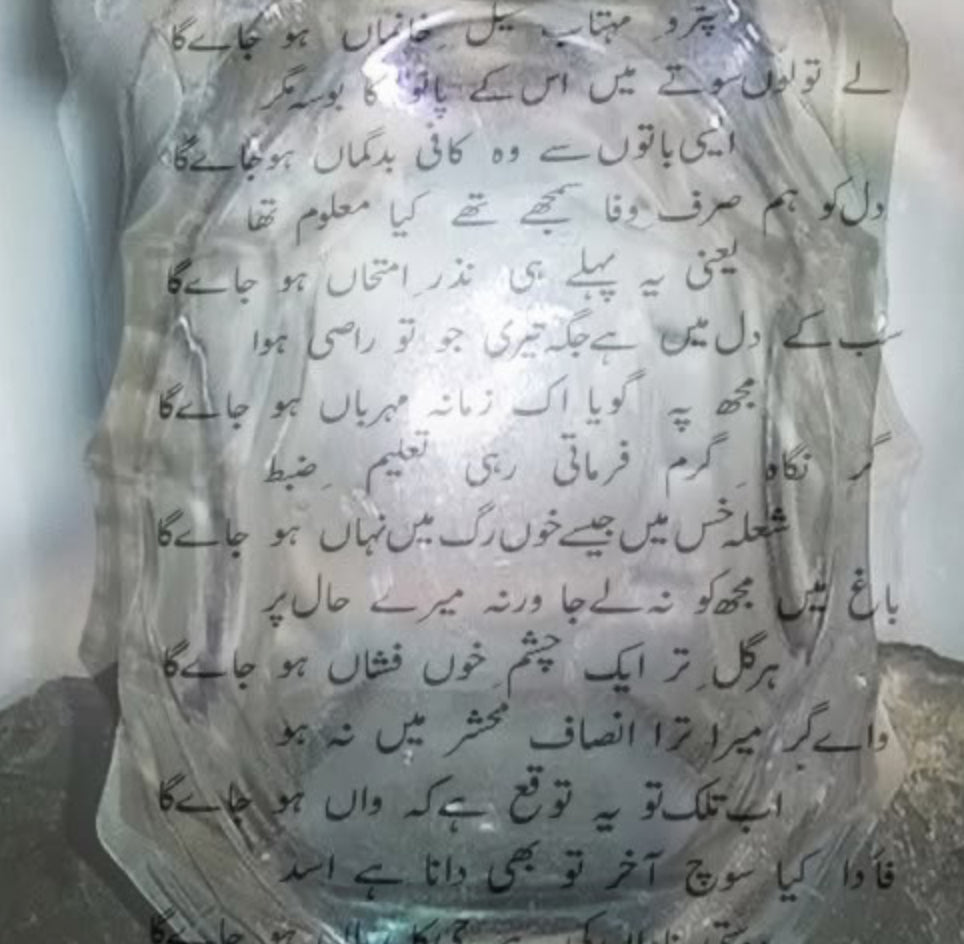 پرتو مہتاب سیل خانماں ہو جاےگا
لے تو لوں سوتے میں اس کے پانو کا بوسہ مگر
ایسی باتوں سے وہ کافی بدگماں ہو جاےگا
دل کو ہم صرف وفا سمجھے تھے کیا معلوم تھا
یعنی یہ پہلے ہی نذر امتحاں ہو جاےگا
سب کے دل میں ہے جگہ تیری جو تو راصی ہوا
مجھ پہ گویا اک زمانہ مہرباں ہو جاےگا
گر نگاہ گرم فرماتی رہی تعلیم ضبط
شعلہ خس میں جیسے خوں رگ میں نہاں ہو جاےگا
باغ میں مجھ کو نہ لے جا ورنہ میرے حال پر
ہر گل تر ایک چشم خوں فشاں ہو جاےگا
واے گر میرا ترا انصاف محشر میں نہ ہو
اب تلک تو یہ توقع ہے کہ واں ہو جاےگا
فأدا کیا سوچ آخر تو بھی دانا ہے اسد
ہو جاےگا